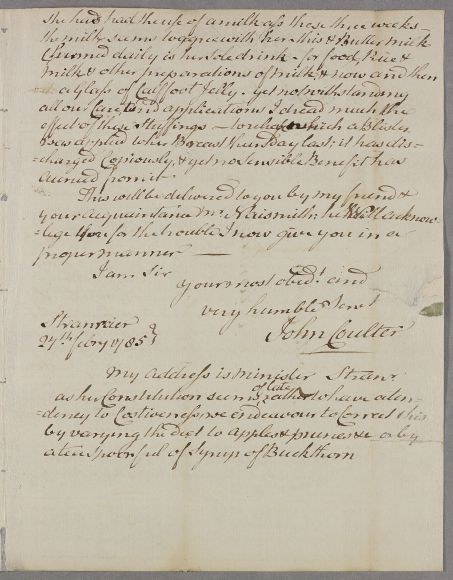 She had had the use of a milk ass these three weeks
the milk seems to agree with her this & Butter milk
Churned daily is her sole drink - for food, Rice &
milk & other preparations of milk & now and then
a Glass of Calf foot Jelly. Yet notwithstanding
all our Care and applications I dread much the
effect of these Stuffings - to relieve which a Blister
was applied to her Breast Tuesday last: it has dis=
=charged Copiously, & yet no sensible Benefit has
accrued from it
This will be delivered to you by my friend &
your acquaintance Mr he will acknow=
lege you for the trouble I now give you in a
proper manner —
I am Sir
your most obedt and
very humble Servt
John Coulter
Stranraer
27th febry 1785
My address is minister Stranr
as her Constitution seems of late rather to have a ten=
=dency to Costiveness we endeavour to Correct this
by varying the diet to apples & prunes &c or by
a tea spoonful of Syrup of Buckthorn